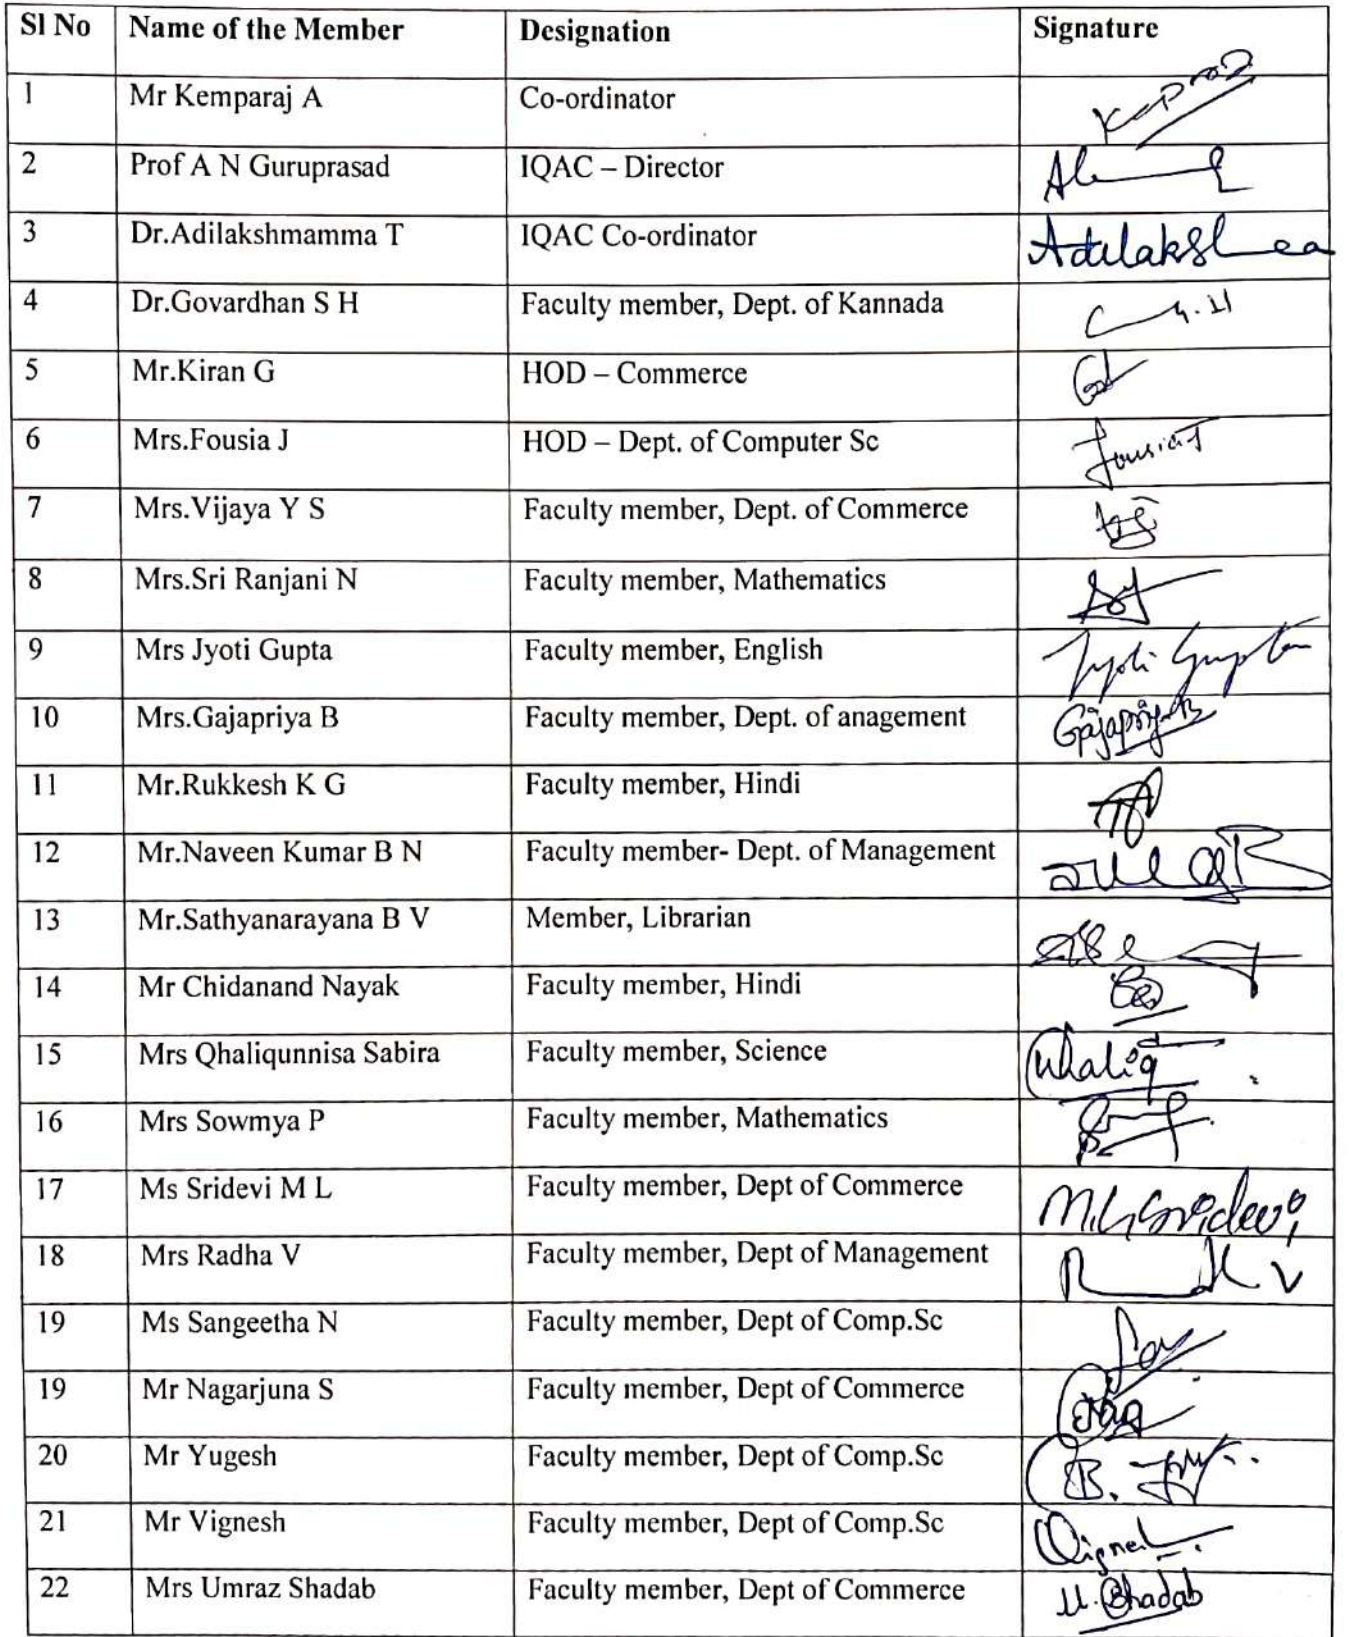 Sl No Name of the Member Designation Signature
1 Mr Kemparaj A Co-ordinator
2 Prof A N Guruprasad IQAC – Director
3 Dr.Adilakshmamma T IQAC Co-ordinator
4 Dr.Govardhan S H Faculty member, Dept. of Kannada
5 Mr.Kiran G HOD – Commerce
6 Mrs.Fousia J HOD – Dept. of Computer Sc FousiaJ
7 Mrs.Vijaya Y S Faculty member, Dept. of Commerce
8 Mrs.Sri Ranjani N Faculty member, Mathematics
9 Mrs Jyoti Gupta Faculty member, English Jyoti Gupta
10 Mrs.Gajapriya B Faculty member, Dept. of anagement Gajapriya B
11 Mr.Rukkesh K G Faculty member, Hindi
12 Mr.Naveen Kumar B N Faculty member- Dept. of Management
13 Mr.Sathyanarayana B V Member, Librarian
14 Mr Chidanand Nayak Faculty member, Hindi
15 Mrs Qhaliqunnisa Sabira Faculty member, Science
16 Mrs Sowmya P Faculty member, Mathematics
17 Ms Sridevi M L Faculty member, Dept of Commerce M.L Sridevi
18 Mrs Radha V Faculty member, Dept of Management
19 Ms Sangeetha N Faculty member, Dept of Comp.Sc
19 Mr Nagarjuna S Faculty member, Dept of Commerce
20 Mr Yugesh Faculty member, Dept of Comp.Sc
21 Mr Vignesh Faculty member, Dept of Comp.Sc
22 Mrs Umraz Shadab Faculty member, Dept of Commerce U. Shadab